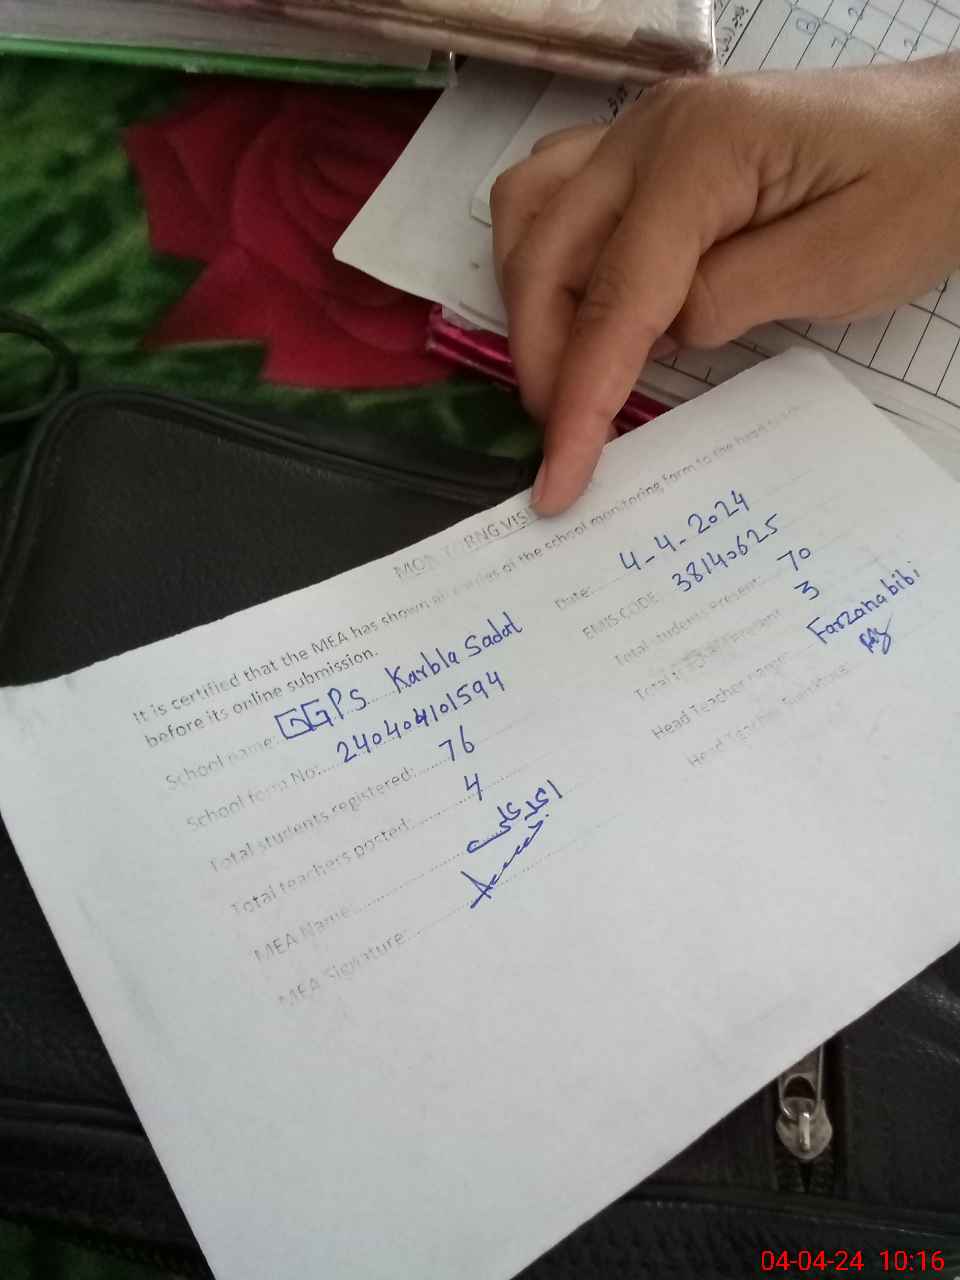 MONITORNG VISIT
It is certified that the MEA has shown all entries of the school monitoring form to the head teacher
before its online submission.
School name: GGPS Karbla Sadat
Date: 4-4-2024
School form No: 240404101594
EMIS CODE: 38140625
Total students registered: 76
Total students present: 70
Total teachers posted: 4
Total teachers present: 3
MEA Name:
Head Teacher name: Farzana bibi
MEA Signature:
Head Teacher Signature:
04-04-24 10:16